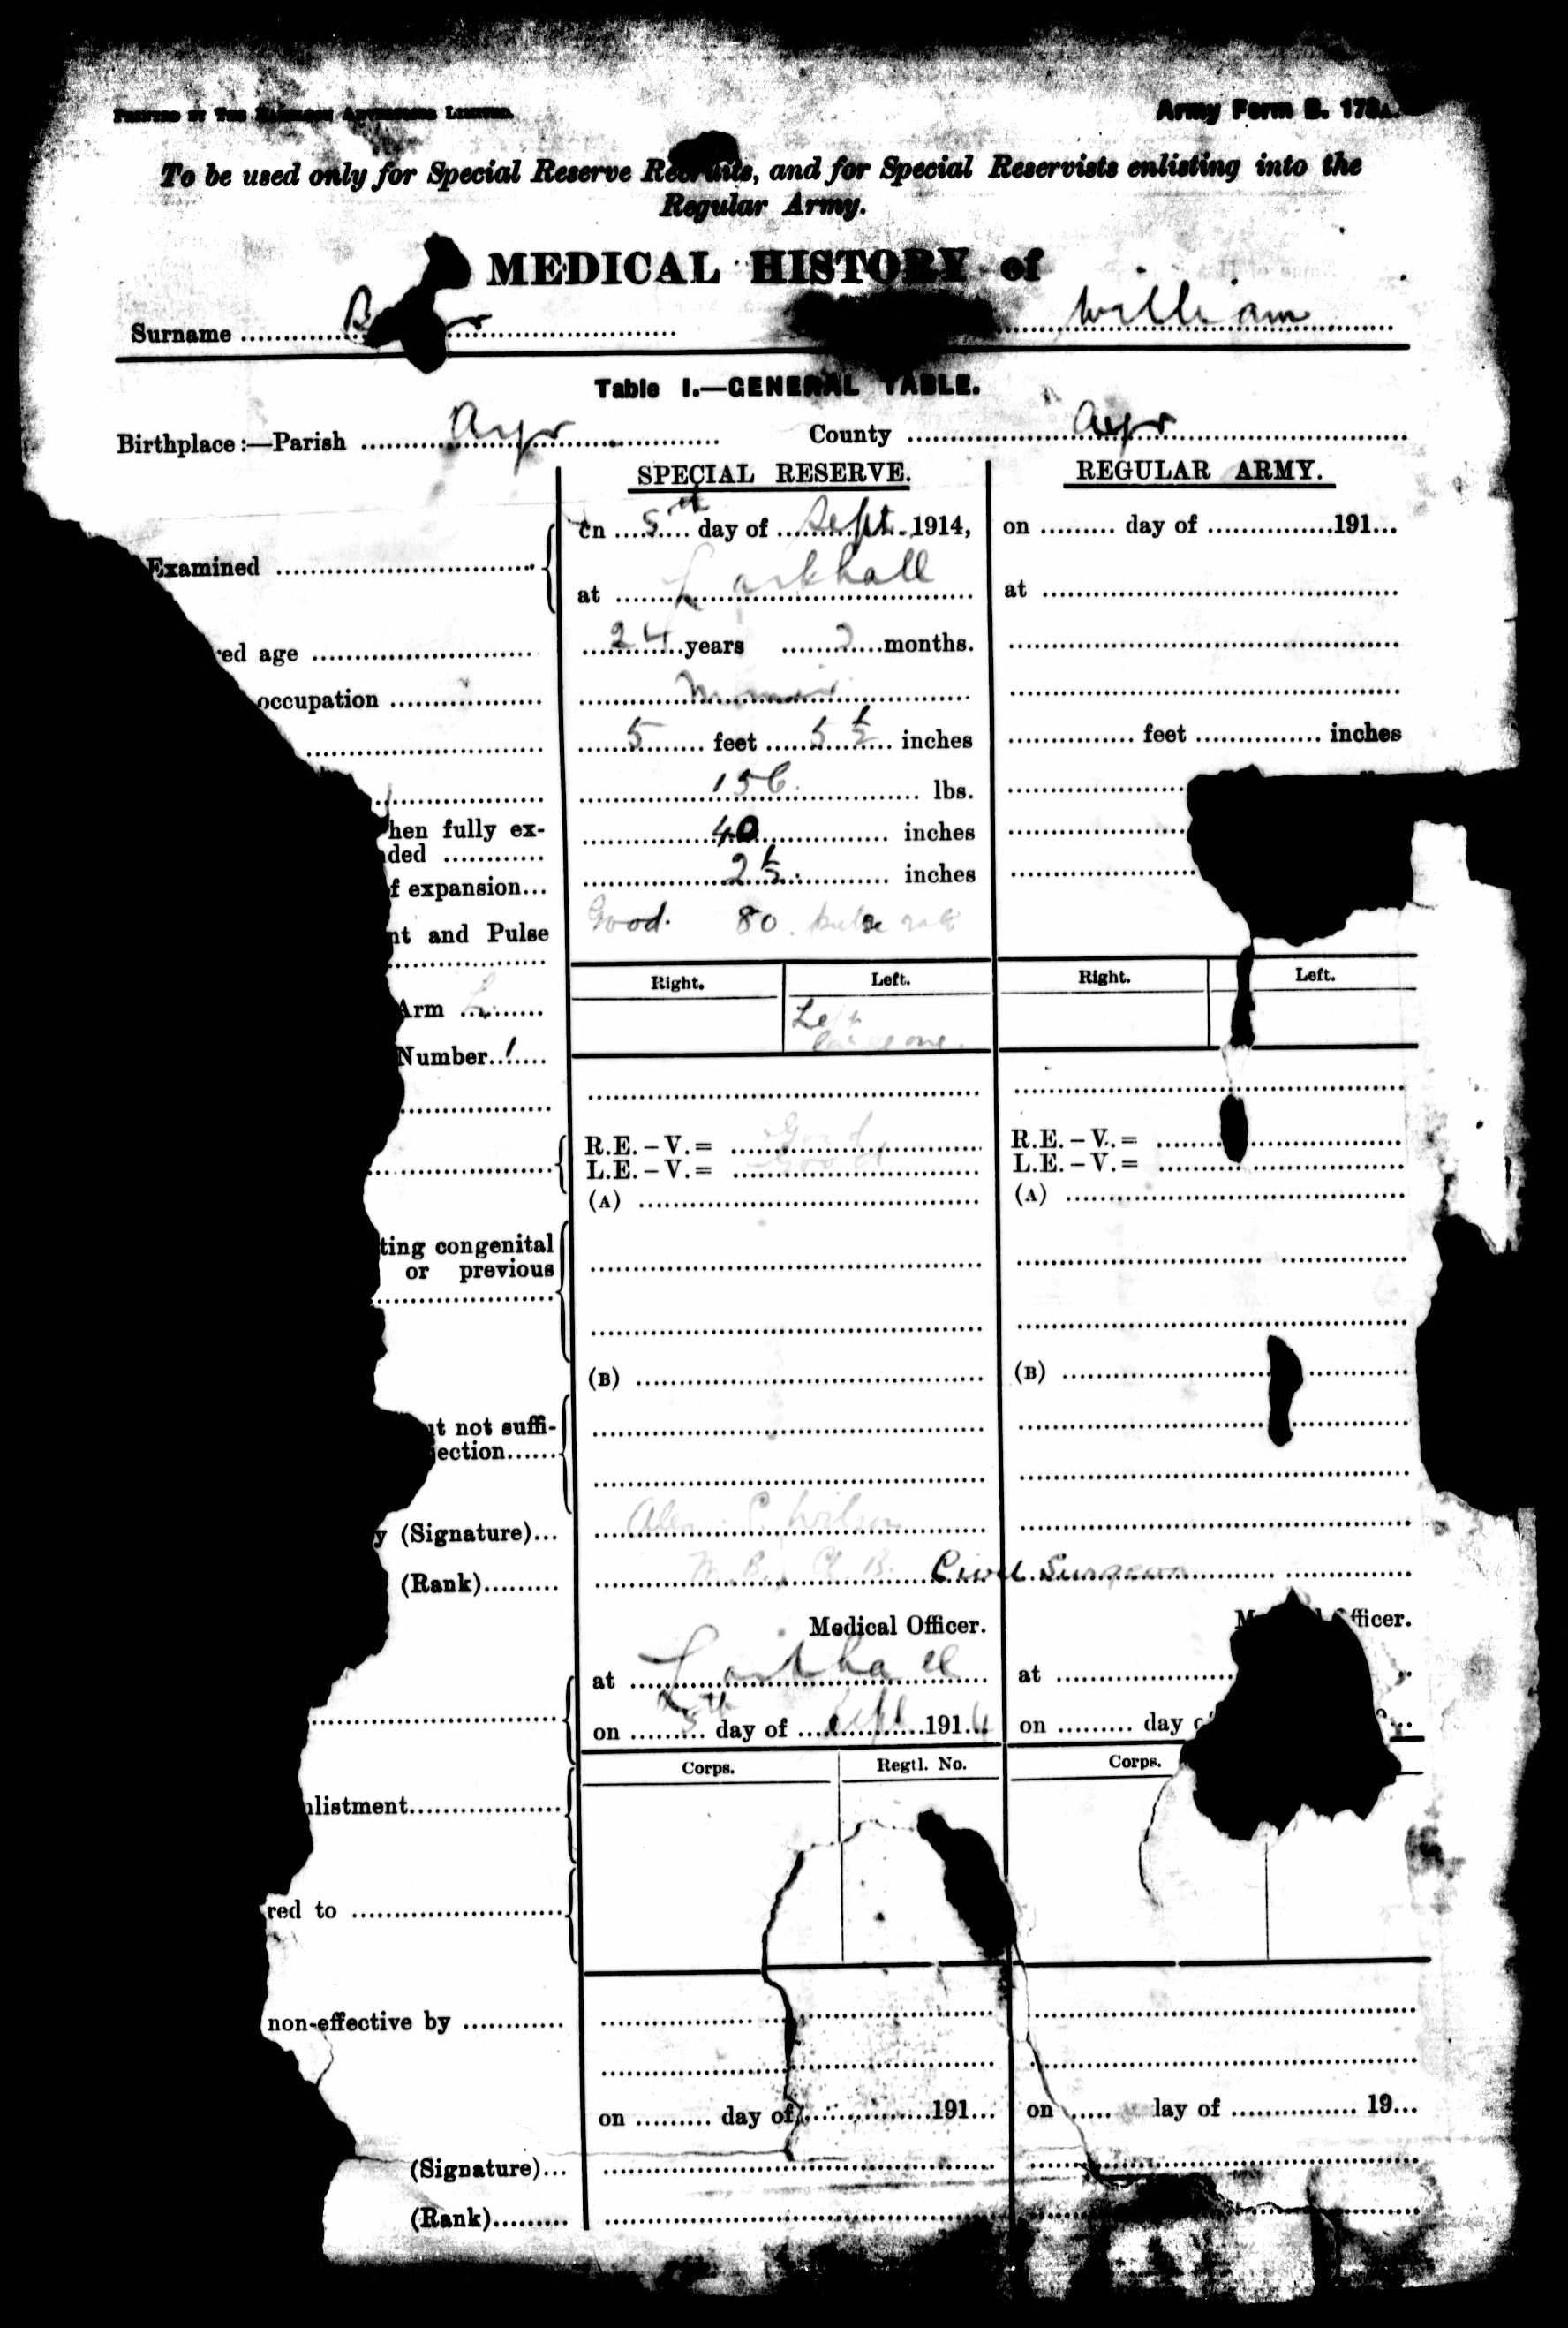 PRINTED BY THE ADVERTISER LIMITED.
Army Form B. 178A.
To be used only for Special Reserve Recruits, and for Special Reservists enlisting into the
Regular Army.
MEDICAL HISTORY of
Surname B r William
Table I.—GENERAL TABLE.
Birthplace:—Parish Ayr County Ayr
SPECIAL RESERVE. REGULAR ARMY.
Examined
on 5th day of Sept 1914, on day of 191
at Larkhall at
red age 24 years months.
occupation
5 feet 5 ½ inches feet inches
156 lbs.
hen fully ex-
ded 40 inches
f expansion 2½ inches
nt and Pulse Good. 80. pulse rate
Right. Left. Right. Left.
Arm L Left
Number 1 one.
R.E.-V.= Good R.E.-V.=
L.E.-V.= Good L.E.-V.=
(A) (A)
ting congenital
or previous
(B) (B)
ut not suffi-
jection
y (Signature) Wilson
(Rank) M.B., Ch.B. Civil Surgeon
Medical Officer. M fficer.
at Larkhall at
on 5th day of Sept 1914 on day
Corps. Regtl. No. Corps.
nlistment
red to
non-effective by
on day of 191 on lay of 19
(Signature)
(Rank)